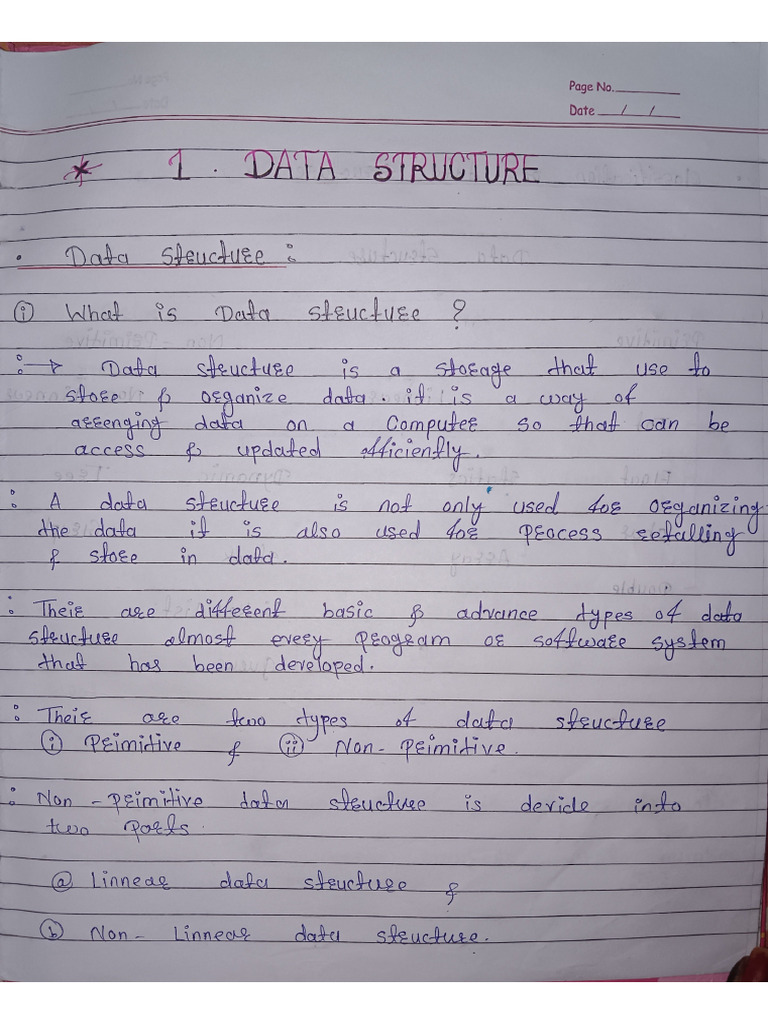 Page No.
Date / /
* 1. DATA STRUCTURE
• Data structure :
(i) What is Data structure ?
:→ Data structure is a storage that use to
store & organize data. it is a way of
arrenging data on a Computer so that can be
access & updated efficiently.
: A data structure is not only used for organizing
the data it is also used for process
& store in data.
: Their are different basic & advance types of data
structure almost every program or software system
that has been developed.
: Their are two types of data structure
(i) Primitive & (ii) Non-primitive.
: Non-primitive data structure is devide into
two parts.
(a) Linnear data structure &
(b) Non-Linnear data structure.